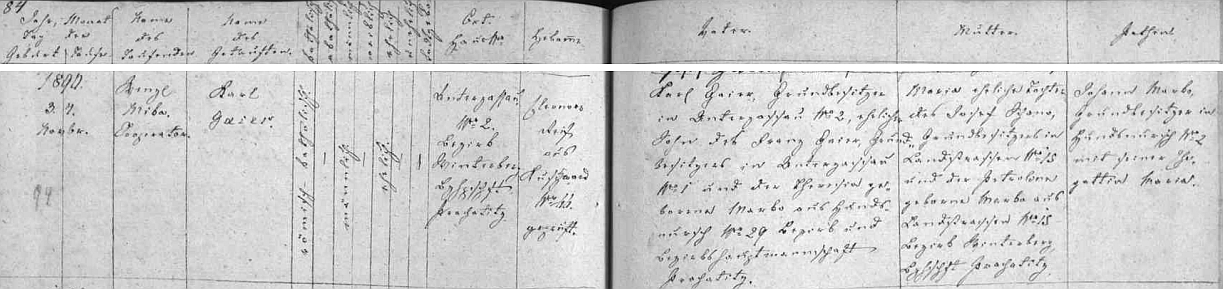 84
Jahr, Monat
Tag der
Geburt Taufe
Name
des
Taufenden
Name
des
Getauften
katholisch
männlich
weiblich
ehelich
unehelich
Ort
Haus No
Hebamme
Vater
Mutter
Pathen
1890.
3. 4.
Novbr.
Wenzl
Cooperator.
Karl
Gaier.
römisch katholisch
männlich
ehelich
Unterzassau
No 2.
Bezirk
Winterberg
Bzhptschft
Prachatitz
Eleonora
aus
Kuschwarda
No 44.
geprüft.
Karl Gaier, Grundbesitzer
in Unterzassau No 2, ehelicher
Sohn des Franz Gaier, Grund-
besitzers in Unterzassau
No 1 und der Theresia ge-
borenen Marbo aus Hunds-
nursch No 29 Bezirk und
Bezirkshauptmannschaft
Prachatitz.
Maria eheliche Tochter
des Josef
Grundbesitzers in
Landstrassen No 15
und der Petrolona
geborene Marbo aus
Landstrassen No 15
Bezirk Winterberg,
Bzhptschft Prachatitz.
Johann Marbo,
Grundbesitzer in
Hundsnursch No 2
mit seiner Ehe-
gattin Maria.
94